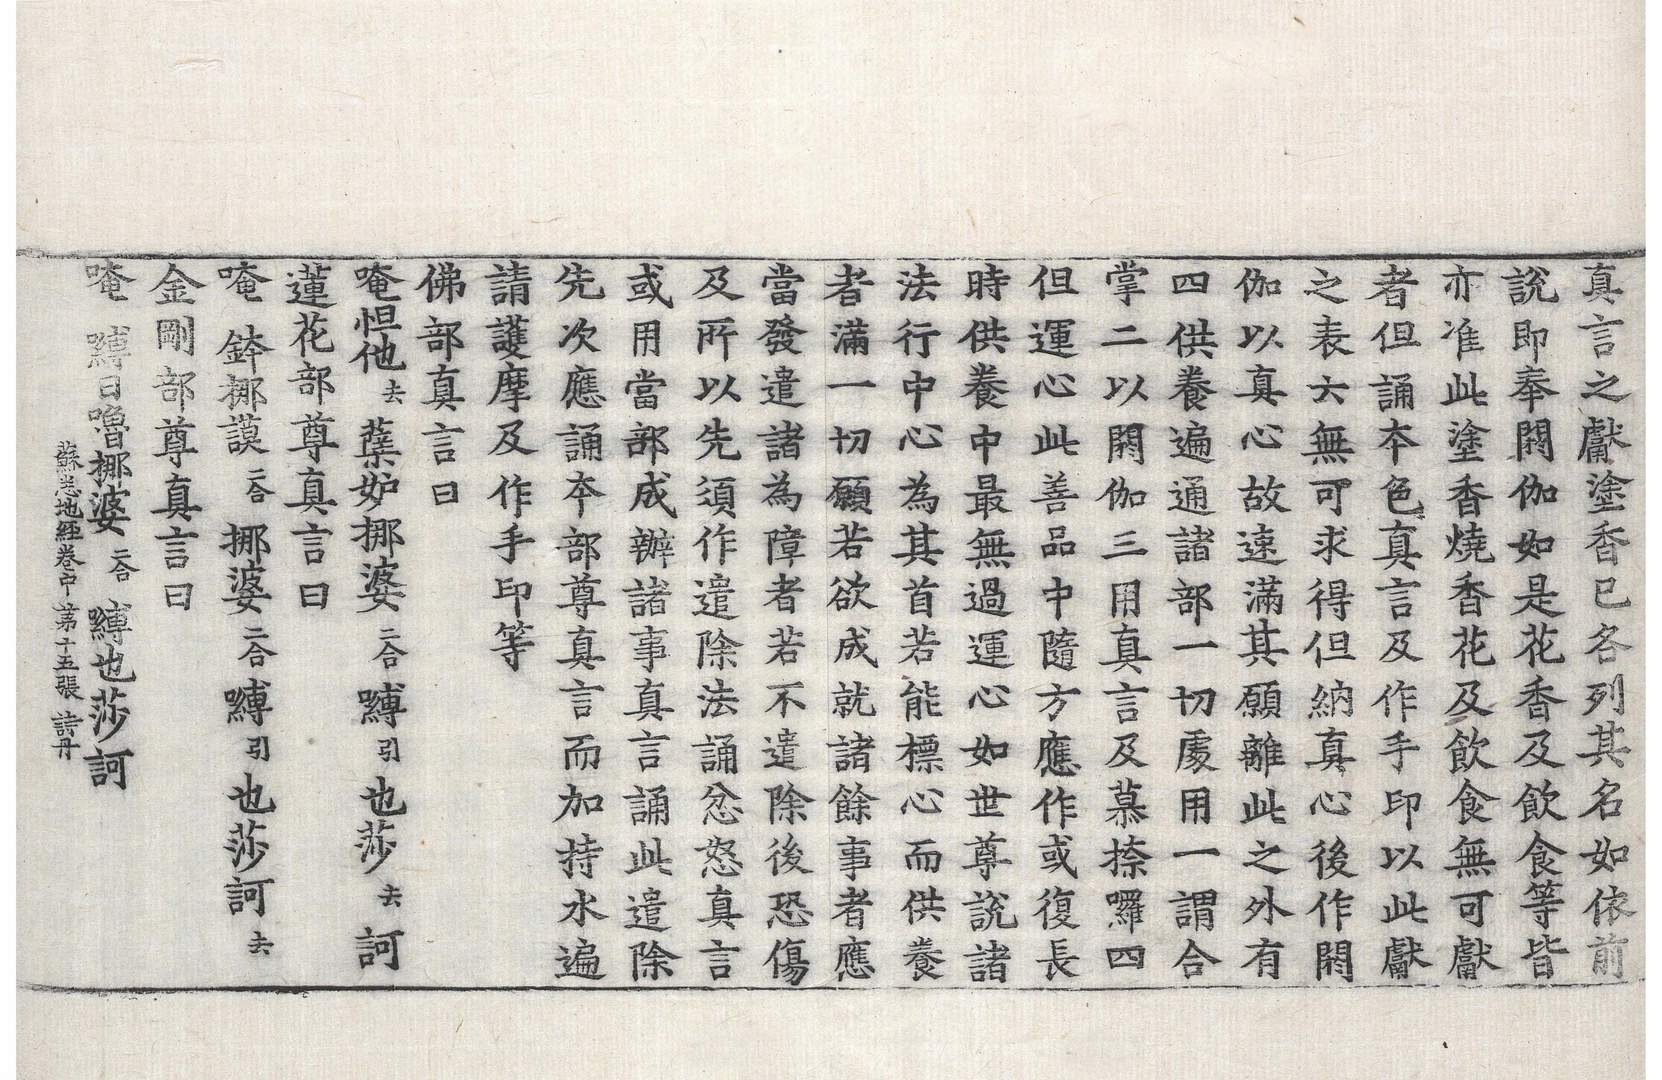 真言之獻塗香已各列其名如依前
說即奉閼伽如是花香及飲食等皆
亦准此塗香燒香花及飲食無可獻
者但誦本色真言及作手印以此獻
之表云無可求得但納真心後作閼
伽以真心故速滿其願離此之外有
四供養遍通諸部一切處用一謂合
掌二以閼伽三用真言及慕捺囉四
但運心此善品中隨方應作或復長
時供養中最無過運心如世尊說諸
法行中心為其首若能標心而供養
者滿一切願若欲成就諸餘事者應
當發遣諸為障者若不遣除後恐傷
及所以先須作遣除法誦忿怒真言
或用當部成辦諸事真言誦此遣除
先次應誦本部尊真言而加持水遍
請護摩及作手印等
佛部真言曰
唵怛他去蘗妒挪婆二合嚩引也莎去訶
蓮花部尊真言曰
唵鉢挪謨二合挪婆二合嚩引也莎訶去
金剛部尊真言曰
唵嚩日嚕挪婆二合嚩也莎訶
蘇悉地經卷中 第十五張 詩丹